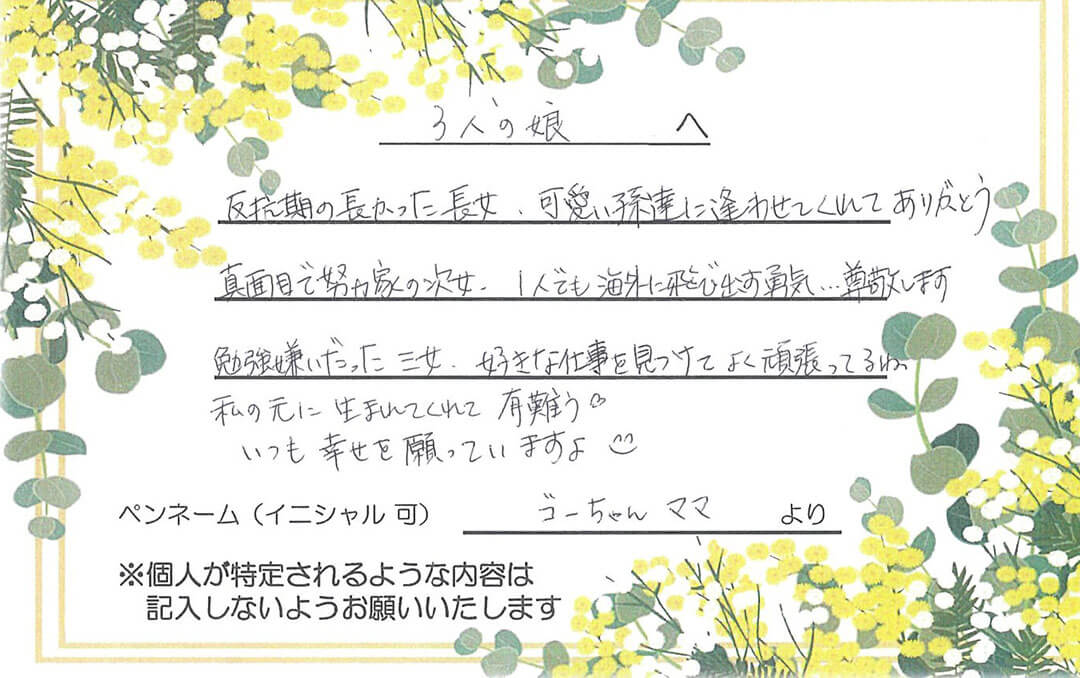 3人の娘 へ
反抗期の長かった長女、可愛い孫達に逢わせてくれてありがとう
真面目で努力家の次女、1人でも海外に飛び出す勇気…尊敬します
勉強嫌いだった三女、好きな仕事を見つけてよく頑張ってるね。
私の元に生まれてくれて有難う
いつも幸せを願っていますよ
ペンネーム（イニシャル可） ゴーちゃんママ より
※個人が特定されるような内容は
記入しないようお願いいたします